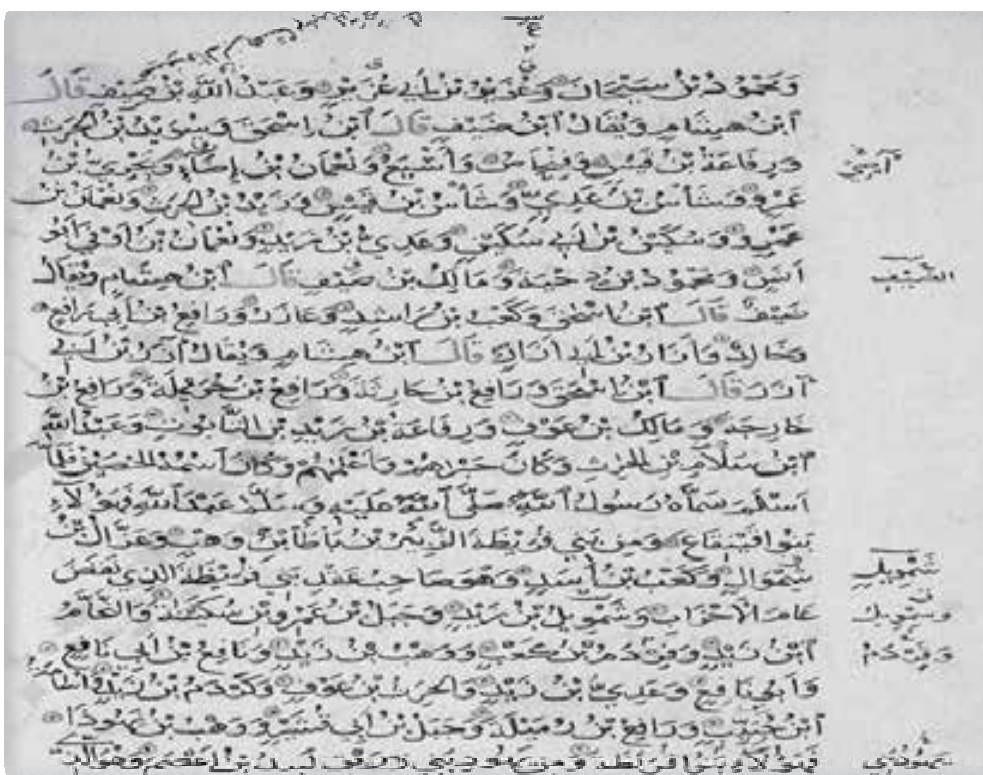 وَمَحْمُودُ بْنُ سَيْحَانَ وَعُزَيْزُ بْنُ أَبِي عُزَيْزٍ وَعَبْدُ اللَّهِ بْنُ صَيْفٍ قَالَ
ابْنُ هِشَامٍ وَيُقَالُ ابْنُ ضَيْفٍ قَالَ ابْنُ إِسْحَقَ وَسُوَيْدُ بْنُ الْحَرِثِ
وَرِفَاعَةُ بْنُ قَيْسٍ وَفِنْحَاصُ وَأَشْيَعُ وَنُعْمَانُ بْنُ إِضَاءٍ وَبَحْرِيُّ بْنُ
عَمْرٍو وَشَاسُ بْنُ عَدِيٍّ وَشَاسُ بْنُ قَيْسٍ وَزَيْدُ بْنُ الْحَرِثِ وَنُعْمَانُ بْنُ
عَمْرٍو وَسُكَيْنُ بْنُ أَبِي سُكَيْنٍ وَعَدِيُّ بْنُ زَيْدٍ وَنُعْمَانُ بْنُ أَوْفَى أَبُو
أَنَسٍ وَمَحْمُودُ بْنُ دِحْيَةَ وَمَالِكُ بْنُ صَيْفٍ قَالَ ابْنُ هِشَامٍ وَيُقَالُ
الضَّيْف
ضَيْفٌ قَالَ ابْنُ إِسْحَقَ وَكَعْبُ بْنُ رَاشِدٍ وَعَازَرُ وَرَافِعُ بْنُ أَبِي رَافِعٍ
وَخَالِدٌ وَأَزَارُ بْنُ أَبِي أَزَارٍ قَالَ ابْنُ هِشَامٍ وَيُقَالُ آزَرُ بْنُ أَبِي
آزَرَ قَالَ ابْنُ إِسْحَقَ وَرَافِعُ بْنُ حَارِثَةَ وَرَافِعُ بْنُ حُرَيْمِلَةَ وَرَافِعُ بْنُ
خَارِجَةَ وَمَالِكُ بْنُ عَوْفٍ وَرِفَاعَةُ بْنُ زَيْدِ بْنِ التَّابُوتِ وَعَبْدُ اللَّهِ
ابْنُ سَلَامِ بْنِ الْحَرِثِ وَكَانَ حَبْرَهُمْ وَأَعْلَمَهُمْ وَكَانَ اسْمُهُ الْحُصَيْنَ فَلَمَّا
أَسْلَمَ سَمَّاهُ رَسُولُ اللَّهِ صَلَّى اللَّهُ عَلَيْهِ وَسَلَّمَ عَبْدَ اللَّهِ فَهَؤُلَاءِ
بَنُو قَيْنُقَاعَ وَمِنْ بَنِي قُرَيْظَةَ الزُّبَيْرُ بْنُ بَاطَا بْنِ وَهْبٍ وَعَزَّالُ بْنُ
شَمْوَالٍ وَكَعْبُ بْنُ أَسَدٍ وَهُوَ صَاحِبُ عَقْدِ بَنِي قُرَيْظَةَ الَّذِي نَقَضَ
شَمْوِيلِ
عَامَ الْأَحْزَابِ وَشَمْوِيلُ بْنُ زَيْدٍ وَجَبَلُ بْنُ عَمْرِو بْنِ سُكَيْنَةَ وَالنَّحَّامُ
وسمويل
ابْنُ زَيْدٍ وَقَرْدَمُ بْنُ كَعْبٍ وَوَهْبُ بْنُ زَيْدٍ وَنَافِعُ بْنُ أَبِي نَافِعٍ
وَقَرْدَمُ
وَأَبُو نَافِعٍ وَعَدِيُّ بْنُ زَيْدٍ وَالْحَرِثُ بْنُ عَوْفٍ وَكَرْدَمُ بْنُ زَيْدٍ وَأُسَامَةُ
ابْنُ حَبِيبٍ وَرَافِعُ بْنُ رُمَيْلَةَ وَجَبَلُ بْنُ أَبِي قُشَيْرٍ وَوَهْبُ بْنُ يَهُوذَا
فَهَؤُلَاءِ بَنُو قُرَيْظَةَ وَمِنْ يَهُودِ بَنِي زُرَيْقٍ لَبِيدُ بْنُ أَعْصَمَ وَهُوَ الَّذِي